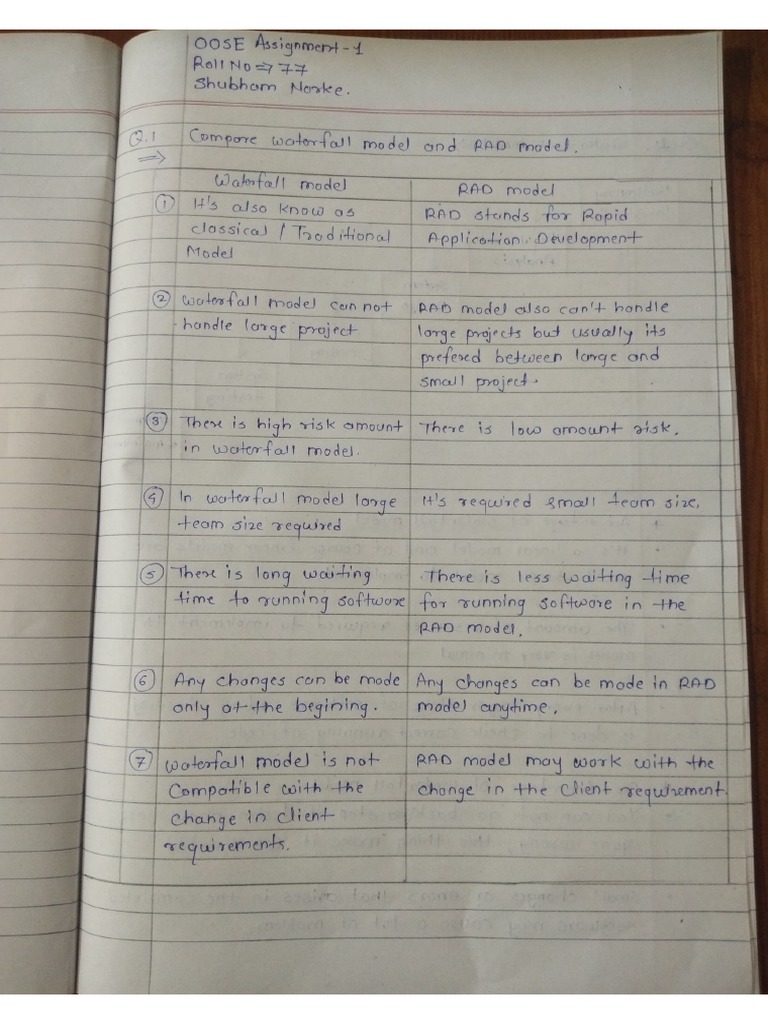 OOSE Assignment-1
Roll No ⇒ 77
Shubham Norke.
Q.1 Compare waterfall model and RAD model.
⇒
Waterfall model
RAD model
① It's also know as
classical / Traditional
Model
RAD stands for Rapid
Application Development
② waterfall model can not
handle large project
RAD model also can't handle
large projects but usually its
prefered between large and
small project.
③ There is high risk amount
in waterfall model.
There is low amount risk.
④ In waterfall model large
team size required
It's required small team size.
⑤ There is long waiting
time to running software
There is less waiting time
for running software in the
RAD model.
⑥ Any changes can be made
only at the begining.
Any changes can be made in RAD
model anytime.
⑦ waterfall model is not
Compatible with the
change in client
requirements.
RAD model may work with the
change in the client requirement.